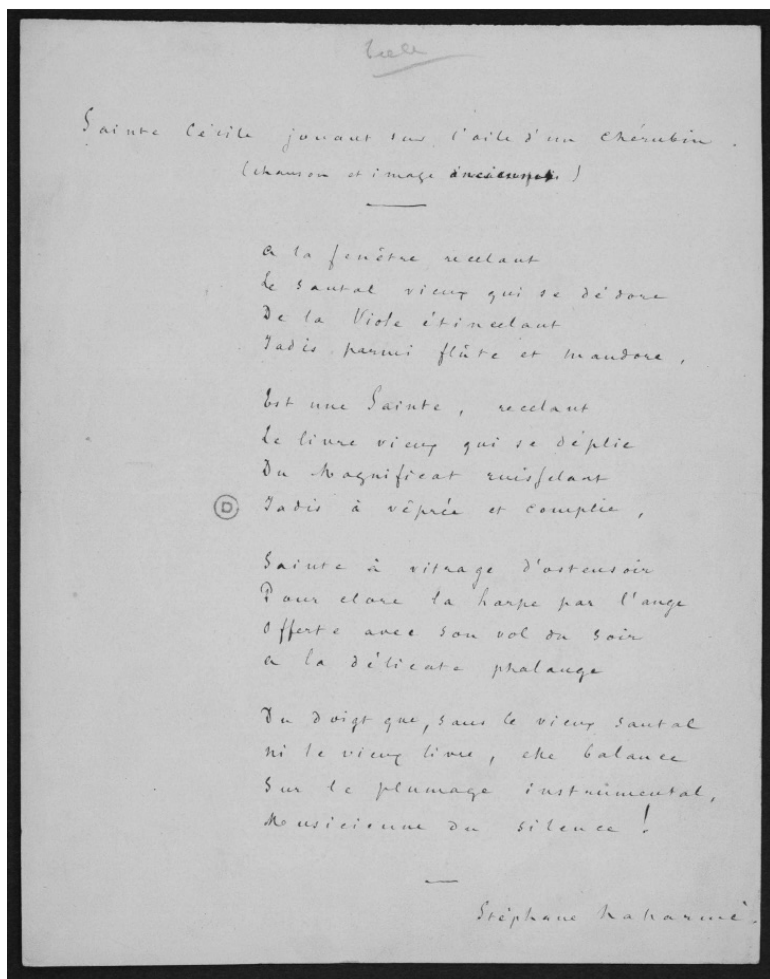 Sainte Cécile jouant sur l'aile d'un chérubin.
(chanson et image anciennes)
A la fenêtre recelant
Le santal vieux qui se dédore
De la Viole étincelant
Jadis parmi flûte et mandore,
Est une Sainte, recelant
Le livre vieux qui se déplie
Du Magnificat ruisselant
D
Jadis à vêprée et complie,
Sainte à vitrage d'ostensoir
Pour clore la harpe par l'ange
Offerte avec son vol du soir
A la délicate phalange
Du doigt que, sans le vieux santal
Ni le vieux livre, elle balance
Sur le plumage instrumental,
Musicienne du silence !
Stéphane Mallarmé.